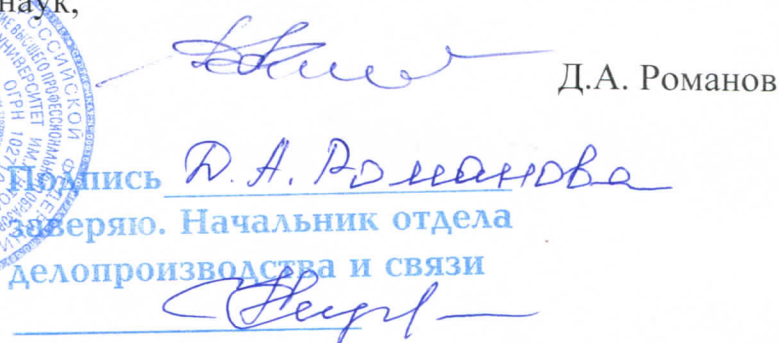 наук,
Д.А. Романов
Подпись Д. А. Романова
заверяю. Начальник отдела
делопроизводства и связи